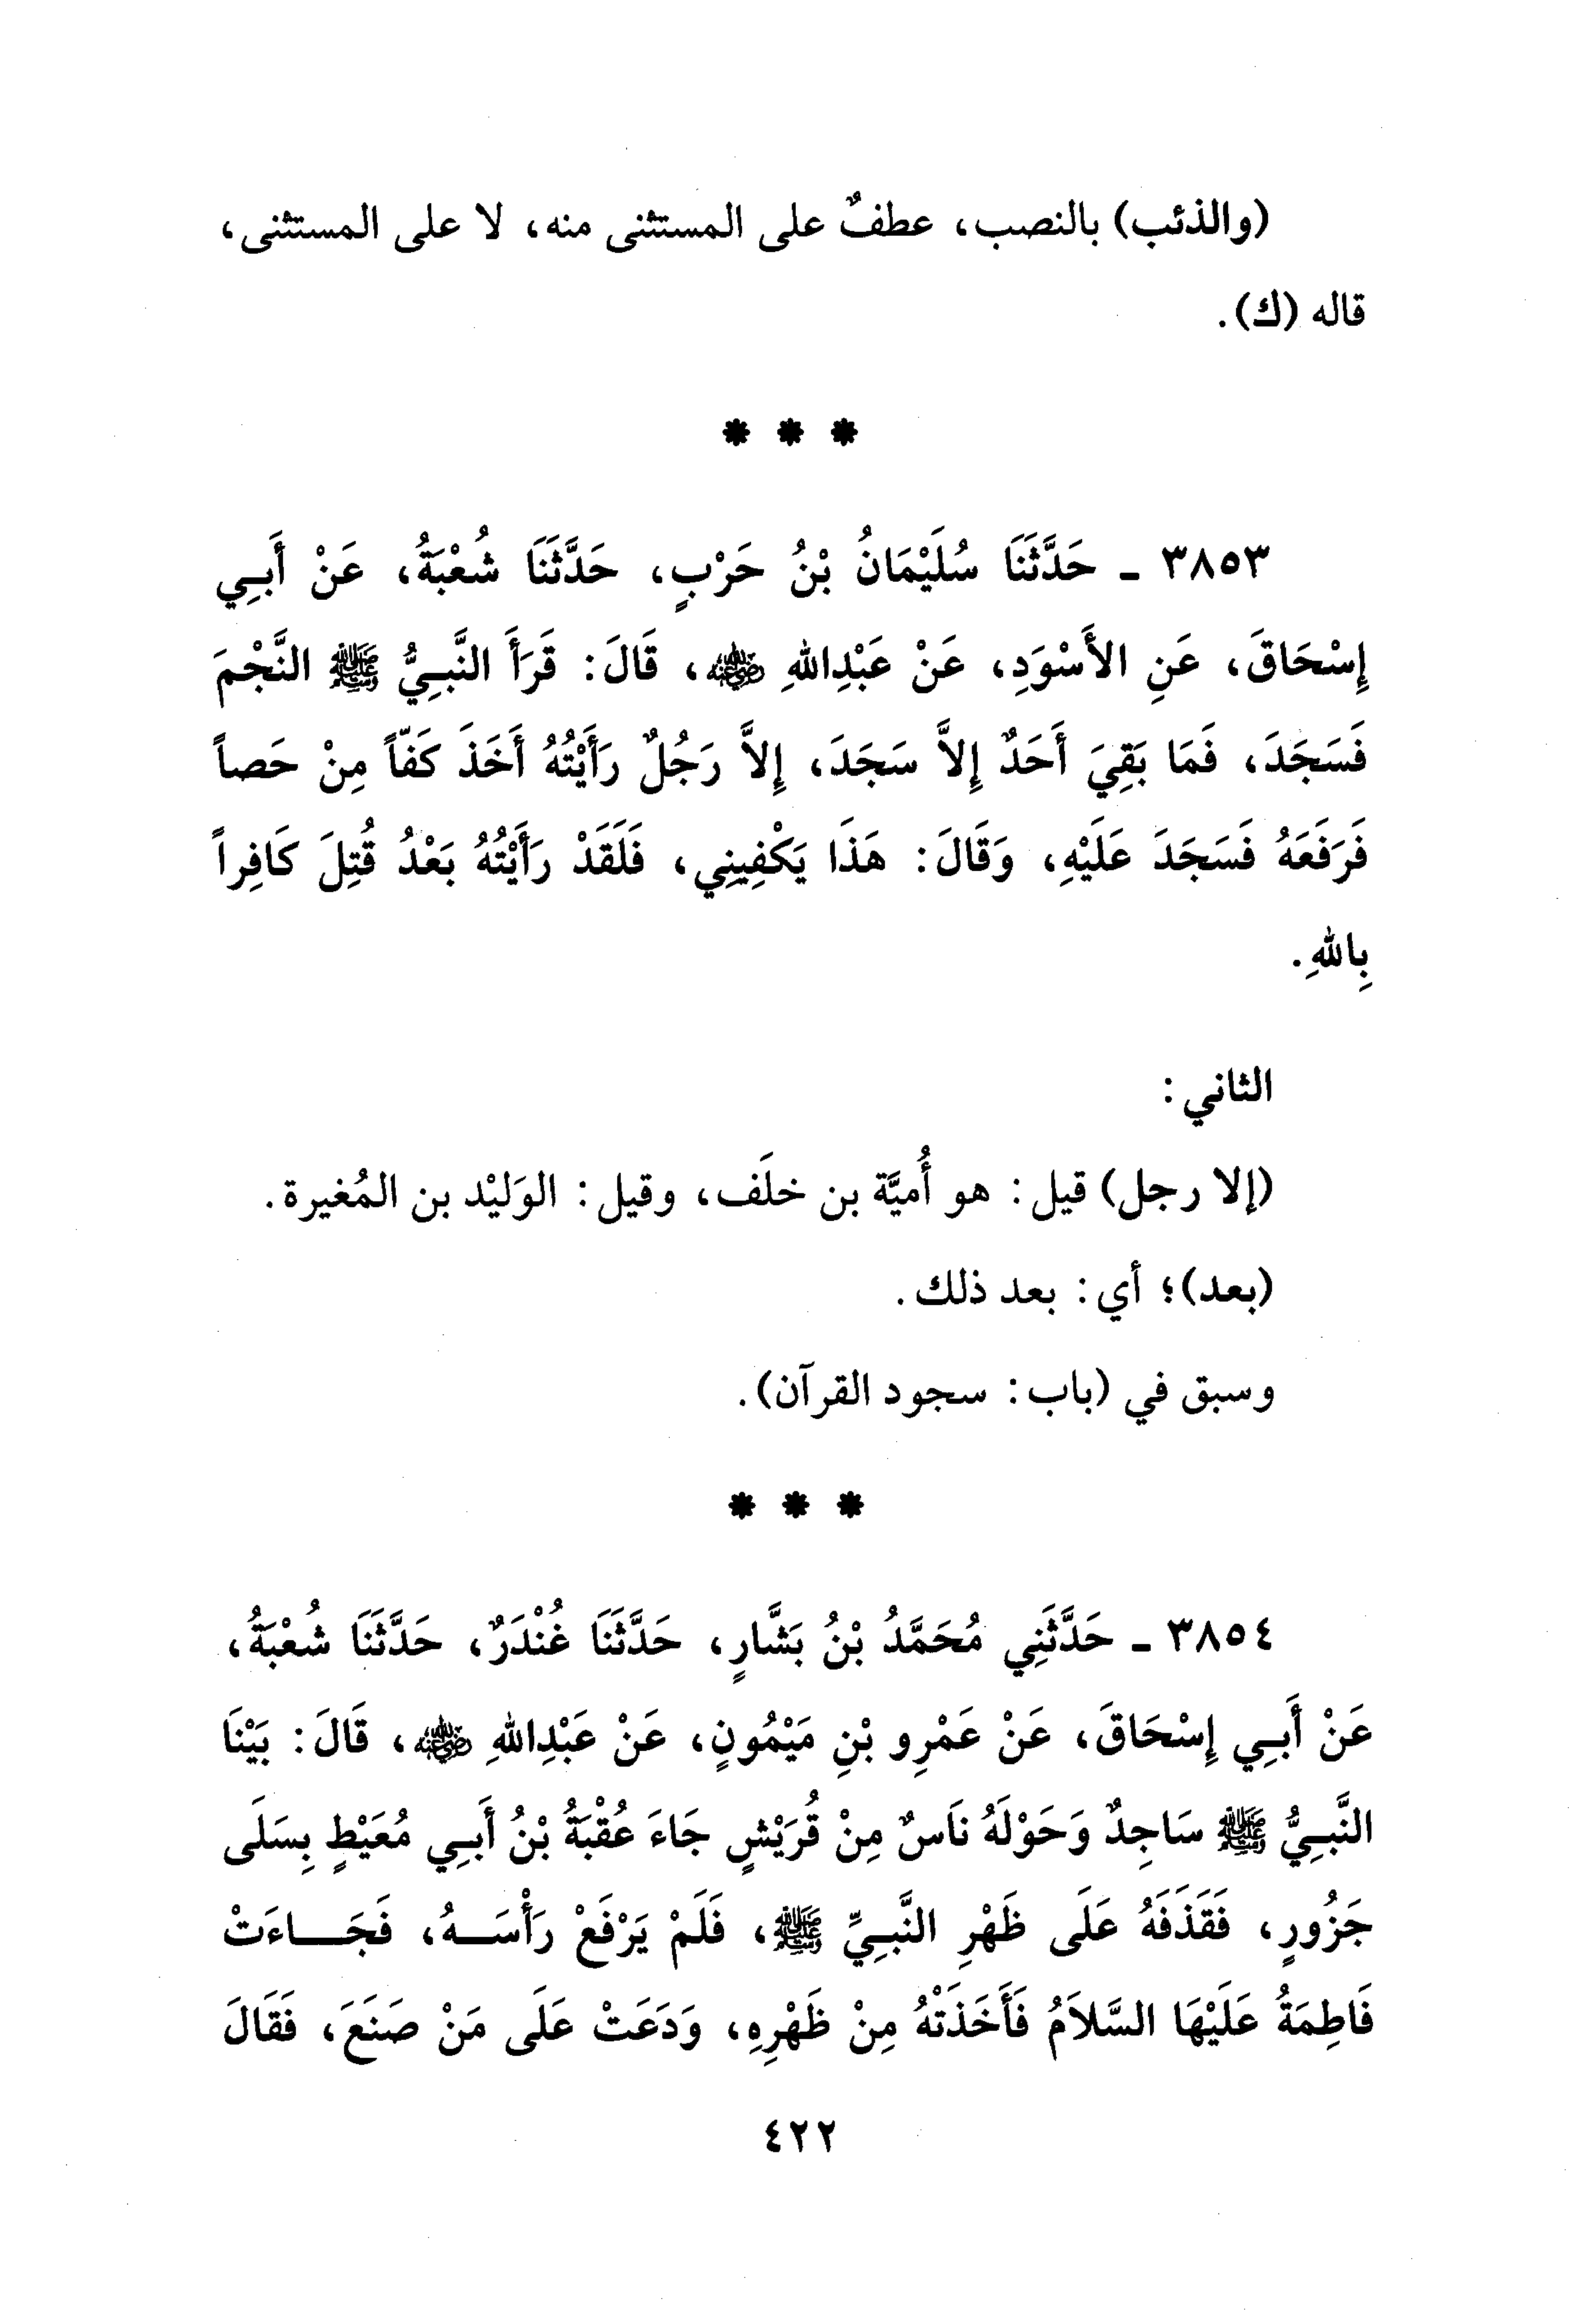 (والذئب) بالنصب، عطفٌ على المستثنى منه، لا على المستثنى،
قاله (ك).
* * *
٣٨٥٣ ـ حَدَّثَنَا سُلَيْمَانُ بْنُ حَرْبٍ، حَدَّثَنَا شُعْبَةُ، عَنْ أَبِي
إِسْحَاقَ، عَنِ الأَسْوَدِ، عَنْ عَبْدِاللهِ رضي الله عنه، قَالَ: قَرَأَ النَّبِيُّ ﷺ النَّجْمَ
فَسَجَدَ، فَمَا بَقِيَ أَحَدٌ إِلاَّ سَجَدَ، إِلاَّ رَجُلٌ رَأَيْتُهُ أَخَذَ كَفّاً مِنْ حَصاً
فَرَفَعَهُ فَسَجَدَ عَلَيْهِ، وَقَالَ: هَذَا يَكْفِينِي، فَلَقَدْ رَأَيْتُهُ بَعْدُ قُتِلَ كَافِراً
بِاللهِ.
الثاني:
(إلا رجل) قيل: هو أُميَّة بن خلَف، وقيل: الوَليْد بن المُغيرة.
(بعد)؛ أي: بعد ذلك.
وسبق في (باب: سجود القرآن).
* * *
٣٨٥٤ ـ حَدَّثَنِي مُحَمَّدُ بْنُ بَشَّارٍ، حَدَّثَنَا غُنْدَرٌ، حَدَّثَنَا شُعْبَةُ،
عَنْ أَبِي إِسْحَاقَ، عَنْ عَمْرِو بْنِ مَيْمُونٍ، عَنْ عَبْدِاللهِ رضي الله عنه، قَالَ: بَيْنَا
النَّبِيُّ ﷺ سَاجِدٌ وَحَوْلَهُ نَاسٌ مِنْ قُرَيْشٍ جَاءَ عُقْبَةُ بْنُ أَبِي مُعَيْطٍ بِسَلَى
جَزُورٍ، فَقَذَفَهُ عَلَى ظَهْرِ النَّبِيِّ ﷺ، فَلَمْ يَرْفَعْ رَأْسَهُ، فَجَاءَتْ
فَاطِمَةُ عَلَيْهَا السَّلاَمُ فَأَخَذَتْهُ مِنْ ظَهْرِهِ، وَدَعَتْ عَلَى مَنْ صَنَعَ، فَقَالَ
٤٢٢